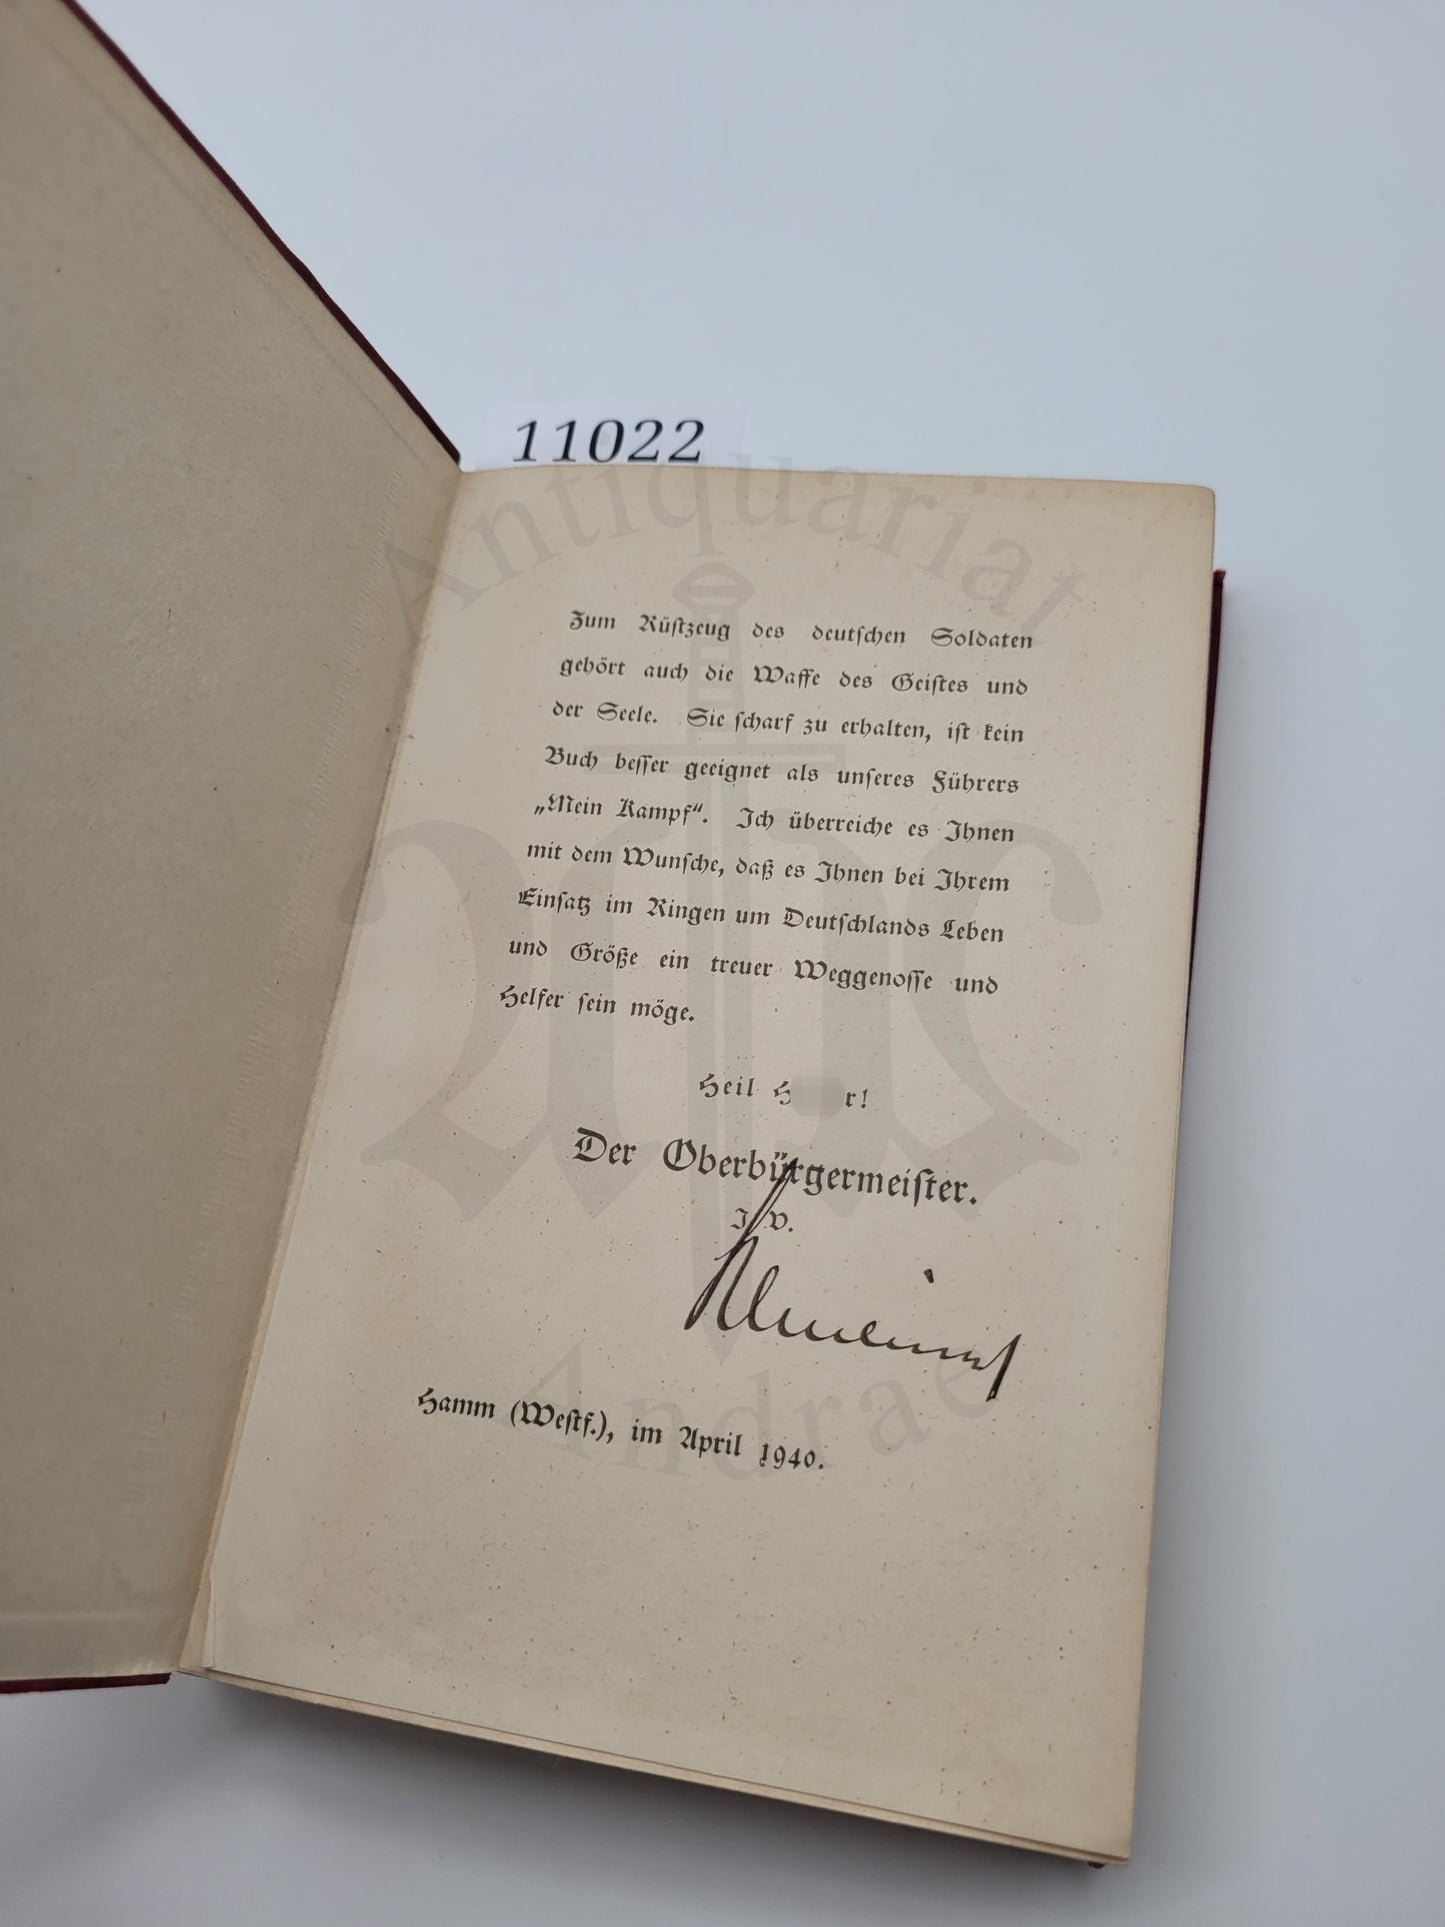 11022
Antiquariat
Zum Rüstzeug des deutschen Soldaten
gehört auch die Waffe des Geistes und
der Seele. Sie scharf zu erhalten, ist kein
Buch besser geeignet als unseres Führers
„Mein Kampf“. Ich überreiche es Ihnen
mit dem Wunsche, daß es Ihnen bei Ihrem
Einsatz im Ringen um Deutschlands Leben
und Größe ein treuer Weggenosse und
Helfer sein möge.
Heil H r!
Der Oberbürgermeister.
I. V.
Hamm (Westf.), im April 1940.
Andrae